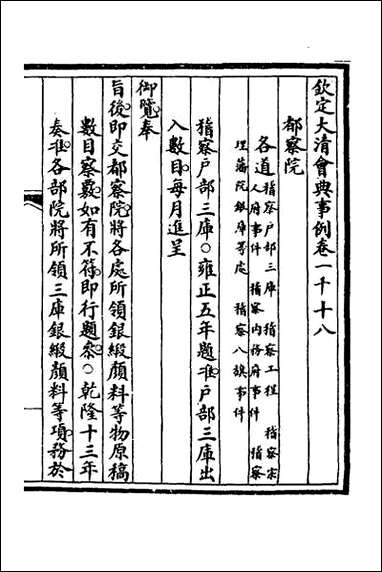 欽定大清會典事例卷一千十八
都察院
各道 稽察户部三庫 稽察工程 稽察宗
人府事件 稽察内務府事件 稽察
理藩院銀庫等處 稽察八旗事件
稽察户部三庫○雍正五年題准户部三庫出
入數目每月進呈
御覽奉
旨後即交都察院將各處所領銀緞顏料等物原稿
數目察覈如有不符即行題叅○乾隆十三年
奏准各部院將所領三庫銀緞顏料等項務於